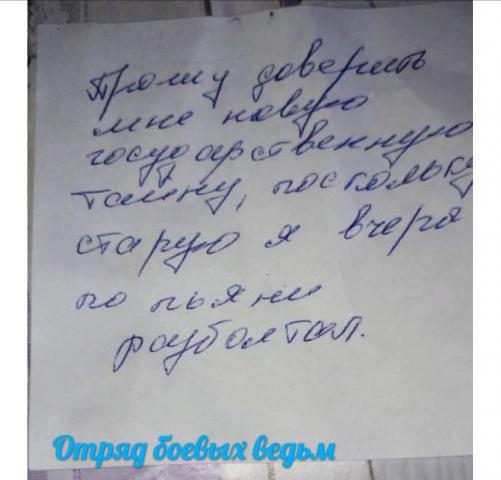 Прошу доверить
мне новую
государственную
тайну, поскольку
старую я вчера
по пьяни
разболтал.
Отряд боевых ведьм